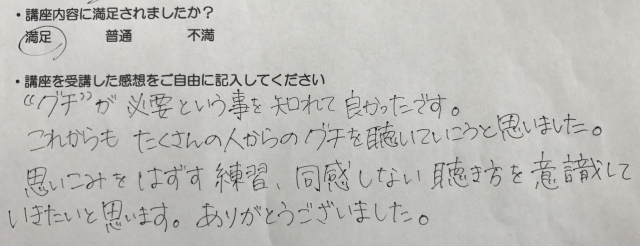 ・講座内容に満足されましたか？
満足　普通　不満
・講座を受講した感想をご自由に記入してください
“グチ”が 必要という事を 知れて 良かったです。
これからも たくさんの人からの グチを聴いていこうと思いました。
思いこみを はずす 練習、同感しない 聴き方を 意識して
いきたいと思います。ありがとうございました。